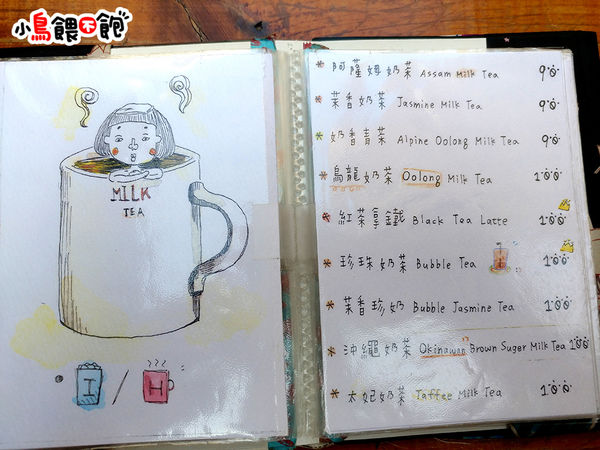 小鳥餵不飽
MILK
TEA
I / H
阿薩姆奶茶 Assam Milk Tea 90
茉香奶茶 Jasmine Milk Tea 90
奶香青茶 Alpine Oolong Milk Tea 90
烏龍奶茶 Oolong Milk Tea 100
紅茶拿鐵 Black Tea Latte 100
珍珠奶茶 Bubble Tea 100
茉香珍奶 Bubble Jasmine Tea 100
沖繩奶茶 Okinawan Brown Suger Milk Tea 100
太妃奶茶 Taffee Milk Tea 100